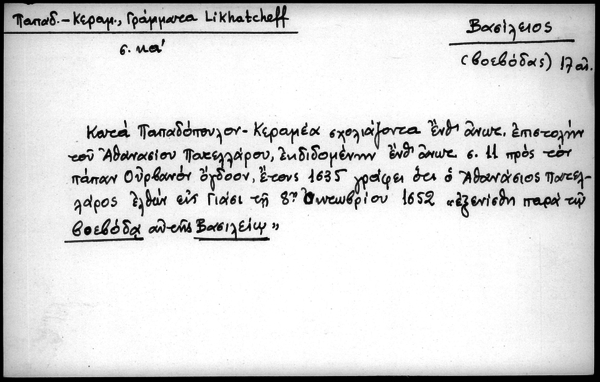 Παπαδ.-Κεραμ., Γράμματα Likhatcheff
σ. κα'
Βασίλειος
(βοεβόδας) 17 αἰ.
Κατὰ Παπαδόπουλον-Κεραμέα σχολιάζοντα ἔνθ' ἄνωτ. ἐπιστολὴν
τοῦ Ἀθανασίου Πατελλάρου, ἐκδιδομένην ἔνθ' ἄνωτ. σ. 11 πρὸς τὸν
πάπαν Οὐρβανὸν ὄγδοον, ἔτους 1635 γράφει ὅτι ὁ Ἀθανάσιος Πατελ-
λάρος ἐλθὼν εἰς Γιάσι τῇ 8ῃ Ὀκτωβρίου 1652 «ἐξενίσθη παρὰ τῷ
βοεβόδᾳ αὐτῆς Βασιλείῳ»